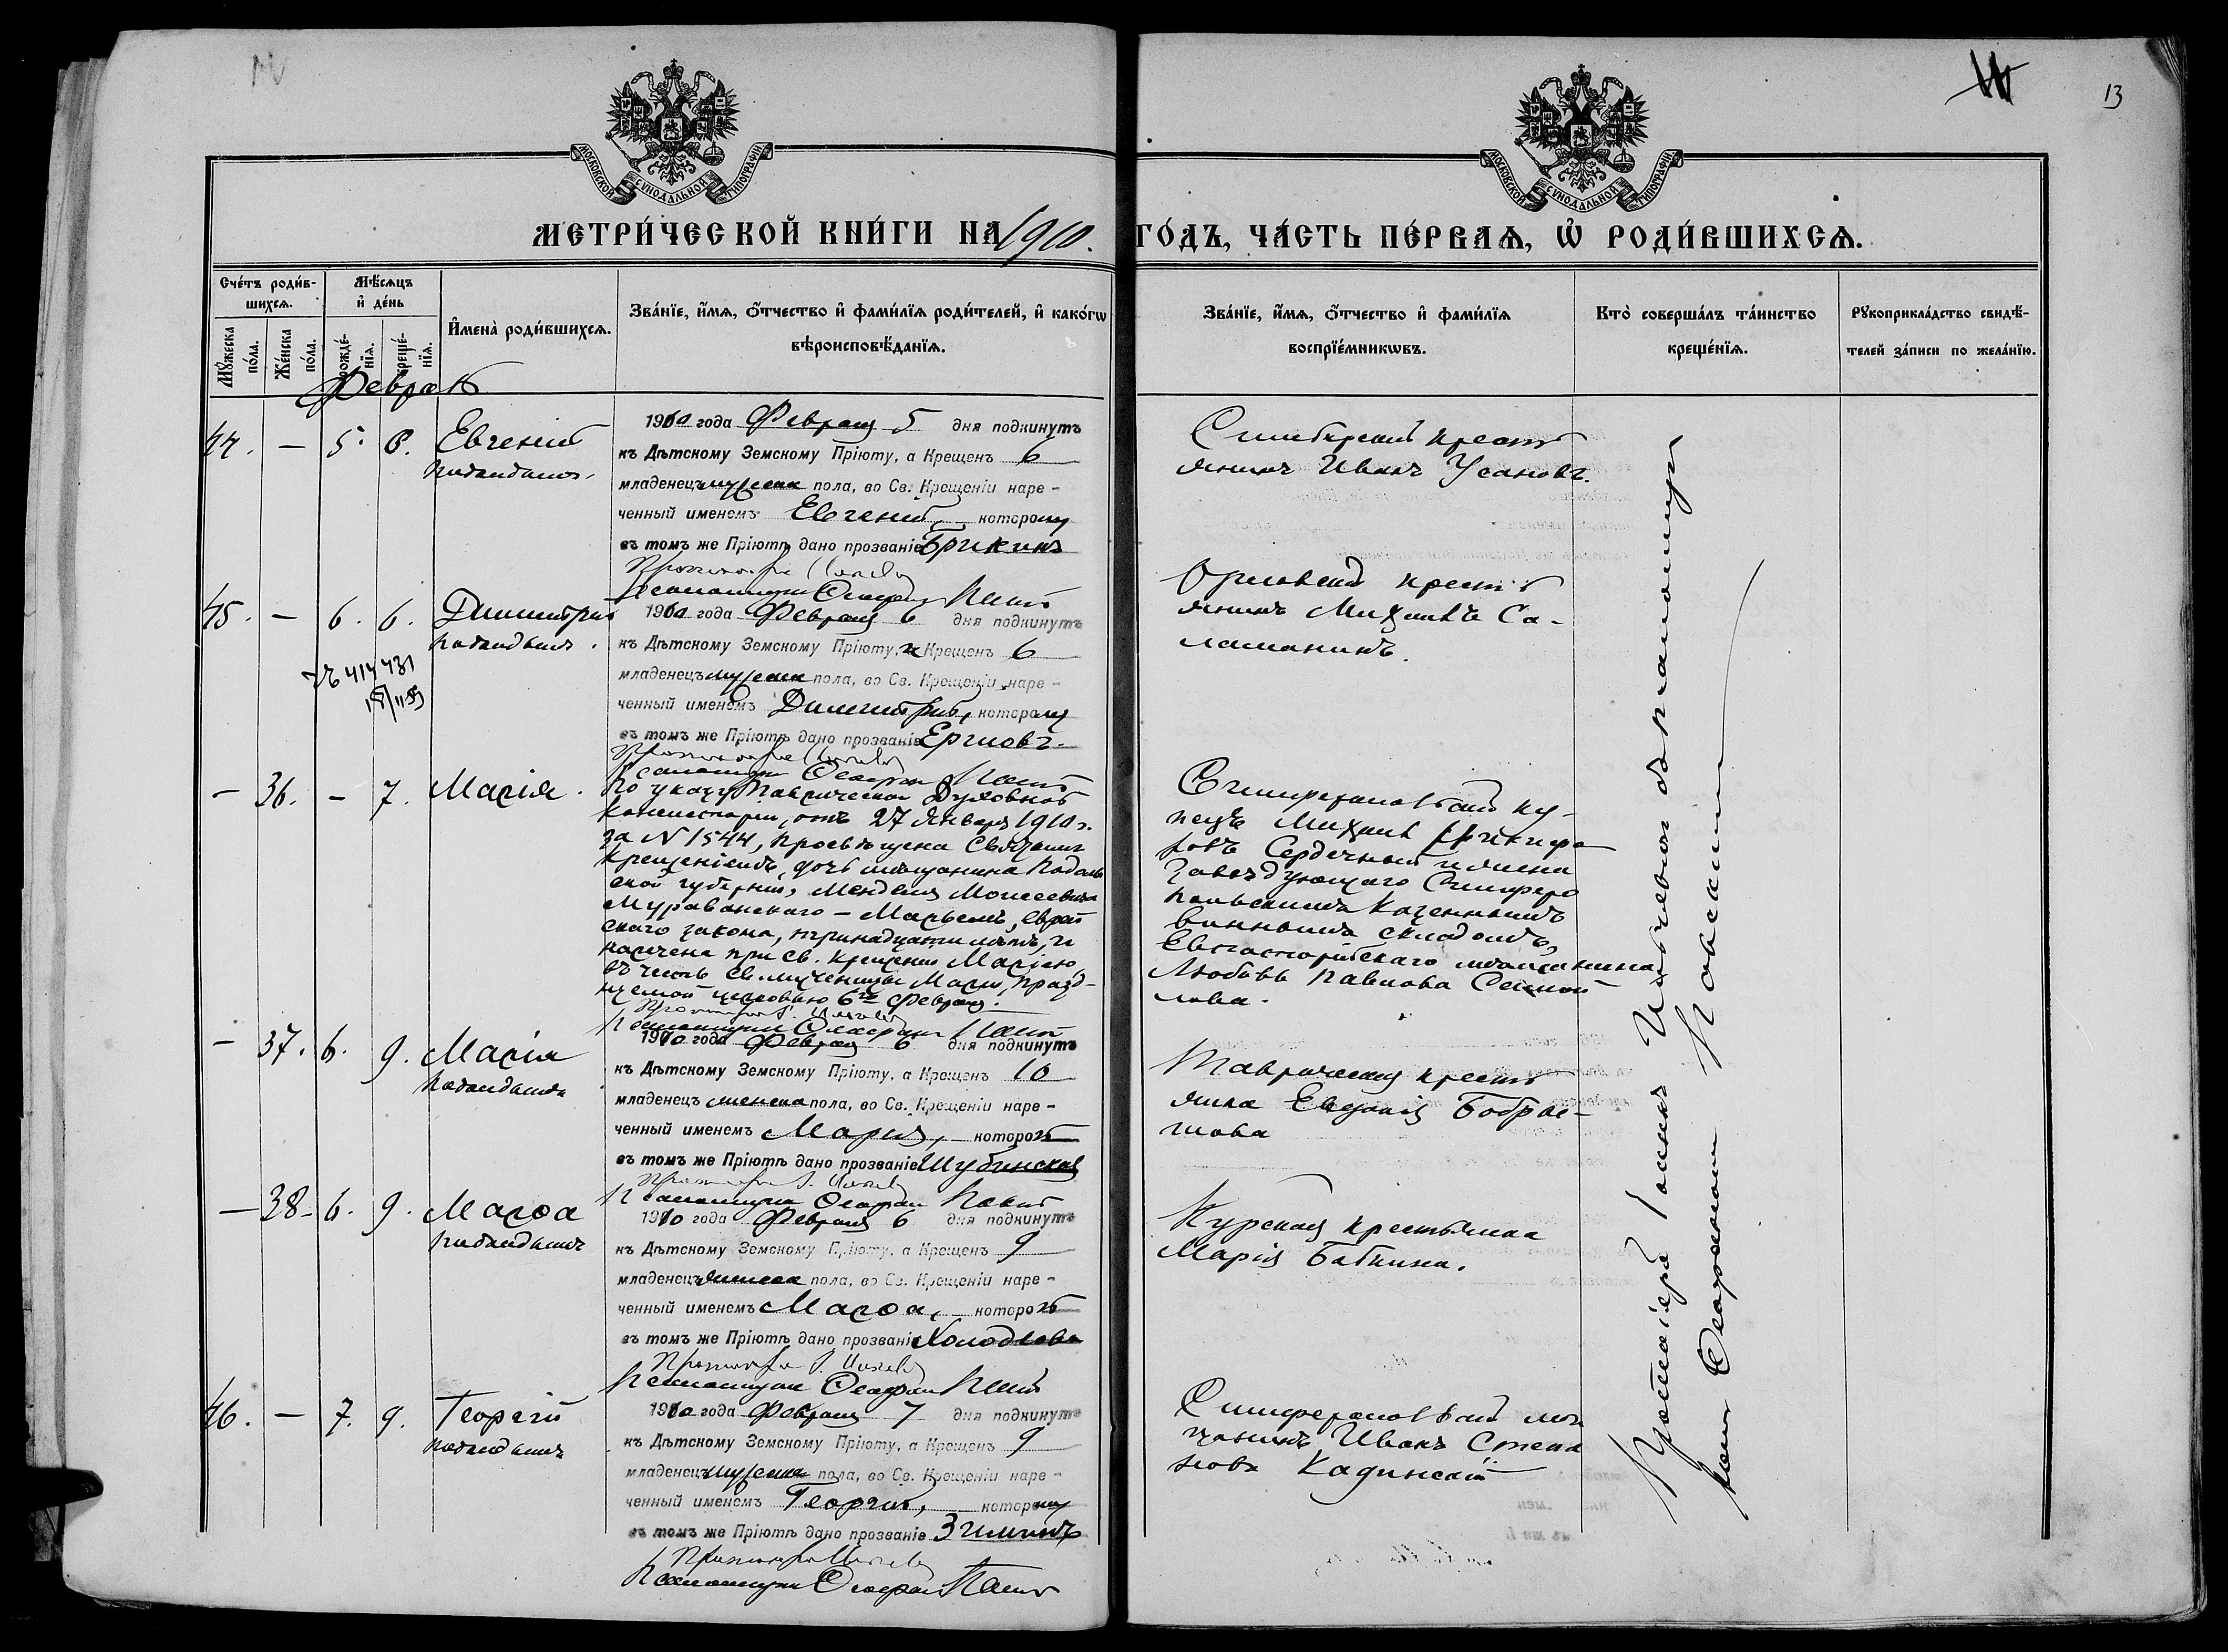 13
МОСКОВСКОЙ СУНОДАЛЬНОЙ ТИПОГРАФІИ.
МОСКОВСКОЙ СУНОДАЛЬНОЙ ТИПОГРАФІИ.
МЕТРИ́ЧЕСКОЙ КНИ́ГИ НА 1910.
ГО́ДЪ, ЧА́СТЬ ПЕ́РВАѦ, Ѡ҆ РОДИ́ВШИХСѦ.
Сче́тъ роди́в-
шихсѧ.
Мѣ́сѧцъ
и҆ де́нь
Мꙋ́жеска
по́ла.
Же́нска
по́ла.
рожде́-
нїѧ.
креще́-
нїѧ.
И҆мена̀ роди́вшихсѧ.
Зва́нїе, и҆́мѧ, ѻ҆́тчество и҆ фами́лїѧ роди́телей, и҆ како́гѡ
вѣроисповѣ́данїѧ.
Зва́нїе, и҆́мѧ, ѻ҆́тчество и҆ фами́лїѧ
воспрїе́мникѡвъ.
Кто̀ соверша́лъ та́инство
креще́нїѧ.
Рꙋкоприкла́дство свидѣ́-
телей за́писи по жела́нїю.
Февраль
44. — 5. 6. Евгеній
подкидышъ.
1910 года Февраля 5 дня подкинутъ
къ Дѣтскому Земскому Пріюту, а Крещенъ 6
младенецъ мужеска пола, во Св. Крещеніи наре-
ченный именемъ Евгеній, которому
въ томъ же Пріютѣ дано прозваніе Брикинъ
Псаломщикъ
Симбирскій кресть
янинъ Иванъ Усановъ.
45. — 6. 6. Димитрій
подкидышъ.
414431
1910 года Февраля 6 дня подкинутъ
къ Дѣтскому Земскому Пріюту, а Крещенъ 6
младенецъ мужеска пола, во Св. Крещеніи наре-
ченный именемъ Димитрій, которому
въ томъ же Пріютѣ дано прозваніе Ергиовъ.
Псаломщикъ
Орловскій кресть
янинъ Михаилъ Са-
ламанинъ.
— 36. — 7. Марія.
По указу Таврической Духовной
Консисторіи, отъ 27 Января 1910 г.
за N 1544, просвѣщена Святымъ
Крещеніемъ, дочь мѣщанина Подоль
ской губерніи, Менделя Моисеевича
Мураванскаго — Марьемъ, еврей
скаго закона, тринадцати лѣтъ, и
наречена при Св. крещеніи Маріею,
въ честь Св. мученицы Маріи, празд-
нуемой церковью 6го Февраля.
Псаломщикъ
Симферопольскій ку-
пецъ Михаилъ Никифо
ровъ Сердечный и жена
Завѣдующаго Симферо
польскимъ Казеннымъ
виннымъ складомъ,
Евпаторійскаго мѣщанина
Любовь Павлова
— 37. 6. 9. Марія
подкидышъ
1910 года Февраля 6 дня подкинутъ
къ Дѣтскому Земскому Пріюту, а Крещенъ 10
младенецъ женска пола, во Св. Крещеніи наре-
ченный именемъ Марія, которой
въ томъ же Пріютѣ дано прозваніе Шубинская
Псаломщикъ
Таврическая кресть
янка Евдокія Бобры-
шова
— 38 — 6. 9. Марѳа
подкидышъ
1910 года Февраля 6 дня подкинутъ
къ Дѣтскому Земскому Пріюту, а Крещенъ 9
младенецъ женска пола, во Св. Крещеніи наре-
ченный именемъ Марѳа, которой
въ томъ же Пріютѣ дано прозваніе Холодкова
Псаломщикъ
Курская крестьянка
Марія Бабкина.
46. — 7. 9. Георгій
подкидышъ
1910 года Февраля 7 дня подкинутъ
къ Дѣтскому Земскому Пріюту, а Крещенъ 9
младенецъ мужеска пола, во Св. Крещеніи наре-
ченный именемъ Георгій, которому
въ томъ же Пріютѣ дано прозваніе Зиминъ
Псаломщикъ
Симферопольскій мѣ
щанинъ Иванъ Степа
новъ Кадинскій
Протоіерей Іоаннъ съ псаломщи
комъ